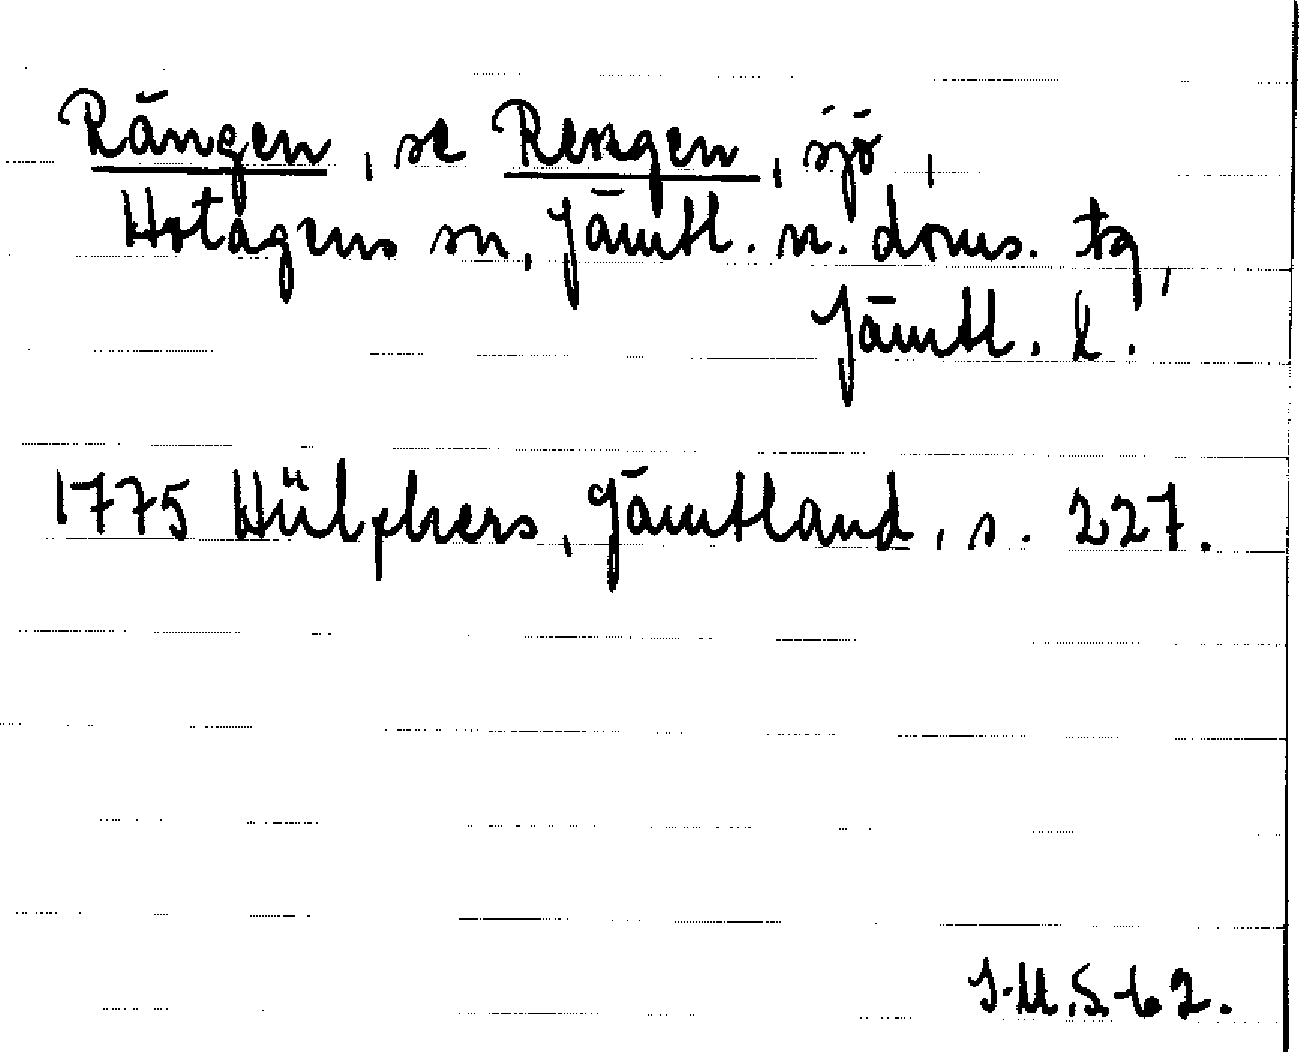 Rängen, se Rengen, sjö,
Hotagens sn, Jämtl. n. doms. tg,
Jämtl. l.
1775 Hülphers, Jämtland, s. 227.
I.M.S. 62.